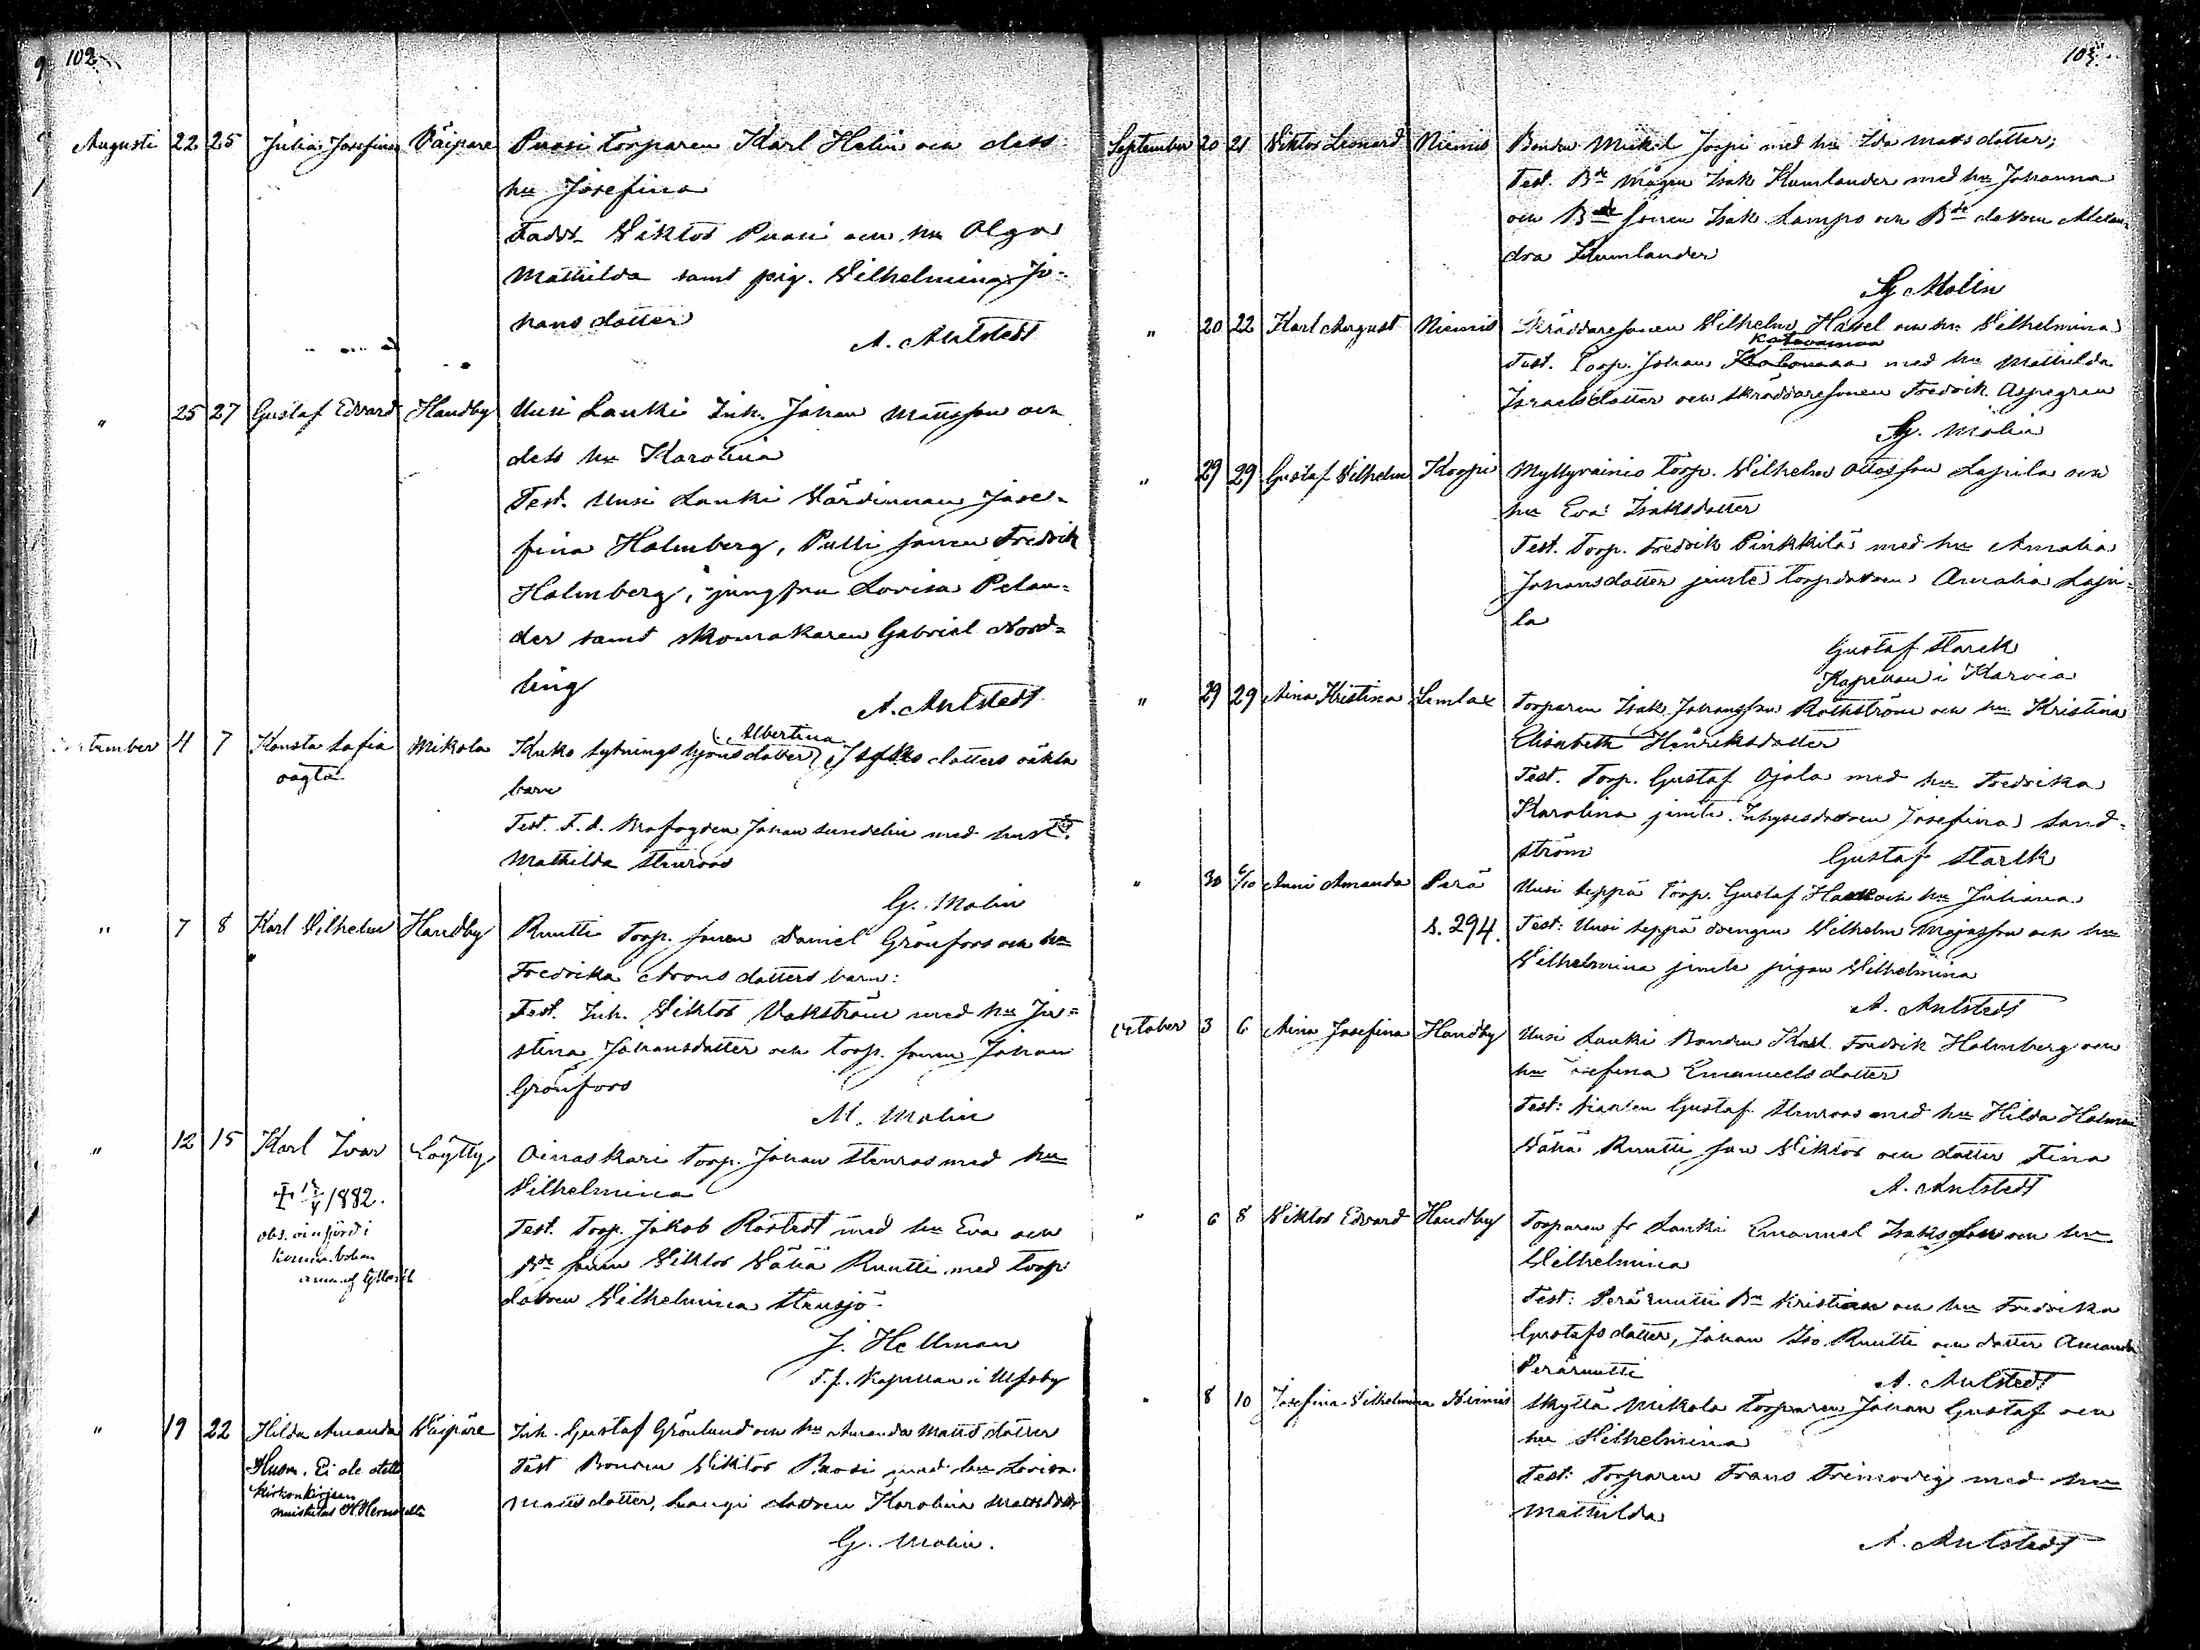 102
Augusti 22 25 Julia Josefina Väipare Puosi torparen Karl Helin och dess
hu Josefina
Fadd. Viktor Puosi och hu Olga
Mathilda samt pig. Vilhelmina Jo-
hansdotter
A. Ahlstedt
" 25 27 Gustaf Edvard Handby Uusi Lauki Inh. Johan Mattsson och
dess hu Karolina
Test. Uusi Lauki Värdinnan Jose-
fina Holmberg, Pulli sonen Fredrik
Holmberg, jungfru Lovisa Pelan-
der samt skomakaren Gabriel Nord-
ling
A. Ahlstedt
September 4 7 Konsta Sofia Mikola Kuko sytningshjonsdotter (Albertina) Isaksdotters oäkta
oägta
barn
Test. F.d. Johan Sundelin med hust.
Mathilda Stenroos
G. Molin
" 7 8 Karl Vilhelm Handby Ruutti Torp. sonen Daniel Grönfors och hu
Fredrika Aronsdotters barn:
Test. Inh. Viktor Vakström med hu Ju-
stina Johansdotter och torp. sonen Johan
Grönfors
M. Molin
" 12 15 Karl Ivar Löytty Oinaskari torp. Johan Stenros med hu
Vilhelmina
1882.
obs. införd i
Test. Torp. Jakob Rostedt med hu Eva och
Bde sonen Viktor Vähä Ruutti med torp
dottren Vilhelmina Stensjö
J. Hellman
T.f. Kapellan i Ulfsby
" 19 22 Hilda Amanda Väipäre Inh. Gustaf Grönlund och hu Amanda Mattsdotter
Huom. Ei ole otettu
kirkonkirjaan
muistutus H. Hernesell
Test Bonden Viktor Puosi med hu Lovisa
Mattsdotter, Laugi dottren Karolina Mattsdotter
G. Molin.
103.
September 20 21 Viktor Leonard Niemis Bonden Mickel Joopi med hu Ida Matsdotter;
Test. Bde Mågen Isak Kumlander med hu Johanna
och Bde sonen Isak Lampo och Bde dottren Alexan-
dra Kumlander
G Molin
" 20 22 Karl August Niemis Skräddaresonen Vilhelm Hassel och hu Vilhelmina
Test. Torp. Johan med hu Mathilda
Israelsdotter och skräddaresonen Fredrik Aspegren
G. Molin
" 29 29 Gustaf Vilhelm Korpi Myllyvainio torp. Vilhelm Ottosson Lapila och
hu Eva Isaksdotter
Test. Torp. Fredrik Pinkkilä med hu Amalia
Johansdotter jemte torpdottren Amalia Lapi-
la
Gustaf Starck
Kapellan i Karvia
" 29 29 Aina Kristina Lamlax Torparen Isak Johansson Rothström och hu Kristina
Elisabeth Henriksdotter
Test. Torp. Gustaf Ojala med hu Fredrika
Karolina jemte Inhysesdottren Josefina Sand-
ström
Gustaf Starck
" 30 6/10 Anni Amanda Perä Uusi Seppä torp. Gustaf och hu Juliana
s. 294. Test: Uusi Seppä drengen Vilhelm Majasson och hu
Vilhelmina jemte pigan Vilhelmina
A. Ahlstedt
October 3 6 Aina Josefina Handby Uusi Lauki Bonden Karl Fredrik Holmberg och
hu Josefina Emanuelsdotter
Test: Gustaf Stenroos med hu Hilda
Vähä Ruutti son Viktor och dotter Stina
A. Ahlstedt
" 6 8 Viktor Edvard Handby Torparen fr Lauki Emanuel Isaksson och hu
Vilhelmina
Test: Peräruutti Bn Kristian och hu Fredrika
Gustafsdotter, Johan Iso Ruutti och dotter Amanda
Peräruutti
A. Ahlstedt
" 8 10 Josefina Vilhelmina Niemis Skyttä Mikola torparen Johan Gustaf och
hu Vilhelmina
Test: Torparen Frans Frimodig med hu
Mathilda
A. Ahlstedt